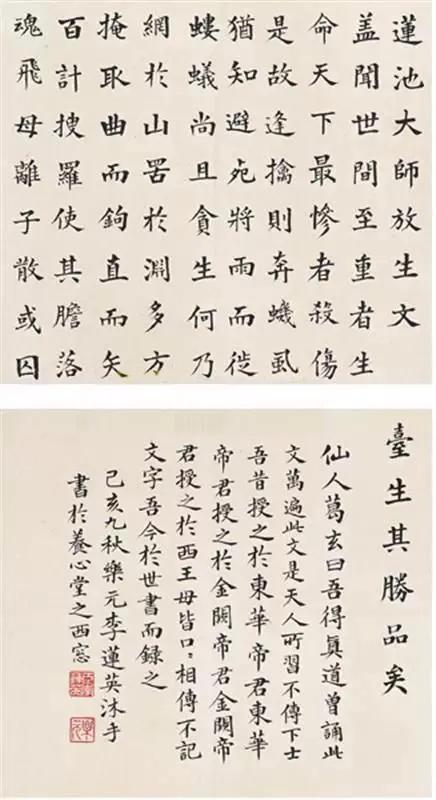 蓮池大師放生文
盖聞世間至重者生
命天下最慘者殺傷
是故逢擒則奔蟣虱
猶知避死將雨而徙
螻蟻尚且貪生何乃
網於山罟於淵多方
掩取曲而鉤直而矢
百計搜羅使其膽落
魂飛母離子散或囚
臺生其勝品矣
仙人葛玄曰吾得眞道曾誦此
文萬遍此文是天人所習不傳下士
吾昔授之於東華帝君東華
帝君授之於金闕帝君金闕帝
君授之於西王母皆口〻相傳不記
文字吾今於世書而錄之
己亥九秋樂元李蓮英沐手
書於養心堂之西窓